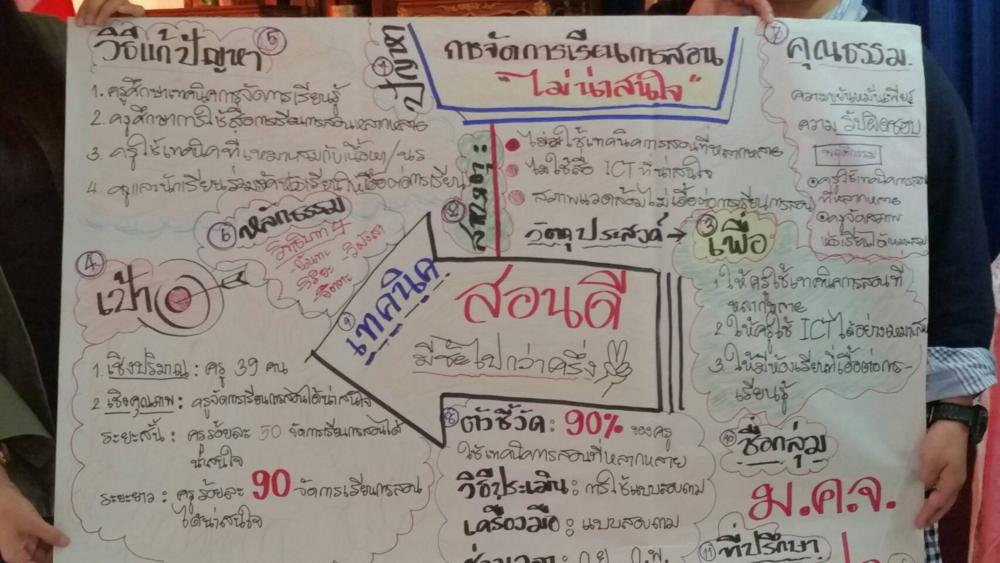 ปัญหา
การจัดการเรียนการสอน
"ไม่น่าสนใจ"
สาเหตุ :
ไม่ใช้เทคนิคการสอนที่หลากหลาย
ไม่ใช้สื่อ ICT ที่น่าสนใจ
สภาพแวดล้อมไม่เอื้อต่อการเรียนการสอน
วัตถุประสงค์ → ③ เพื่อ
1. ให้ครูใช้เทคนิคการสอนที่
หลากหลาย
2. ให้ครูใช้ ICT ได้อย่าง
3. ให้มีห้องเรียนที่เอื้อต่อการ-
เรียนรู้
④ เป้า
1. เชิงปริมาณ : ครู 39 คน
2. เชิงคุณภาพ : ครูจัดการเรียนการสอนได้น่าสนใจ
ระยะสั้น : ครูร้อยละ 50 จัดการเรียนการสอนได้
น่าสนใจ
ระยะยาว : ครูร้อยละ 90 จัดการเรียนการสอน
ได้น่าสนใจ
วิธีแก้ปัญหา ⑤
1. ครูศึกษาเทคนิคการจัดการเรียนรู้
2. ครูศึกษาการใช้สื่อการเรียนการสอนหลากหลาย
3. ครูใช้เทคนิคที่เหมาะสมกับเนื้อหา/นร.
4. ครูและนักเรียนร่วมจัดห้องเรียนให้เอื้อต่อการเรียน
⑥ หลักธรรม
อิทธิบาท 4
- ฉันทะ
- วิริยะ
- จิตตะ
- วิมังสา
คุณธรรม
ความขยันหมั่นเพียร
ความรับผิดชอบ
ครูใช้เทคนิคการสอน
ที่หลากหลาย
ครูจัดสภาพ
ห้องเรียนได้เหมาะสม
ตัวชี้วัด : 90% ของครู
ใช้เทคนิคการสอนที่หลากหลาย
วิธีประเมิน : การใช้แบบสอบถาม
เครื่องมือ : แบบสอบถาม
ช่วงเวลา : ก.ย. ก.พ.
⑨ เทคนิค
สอนดี
มีชัยไปกว่าครึ่ง
⑩ ชื่อกลุ่ม
ม.ค.จ.
⑪ ที่ปรึกษา